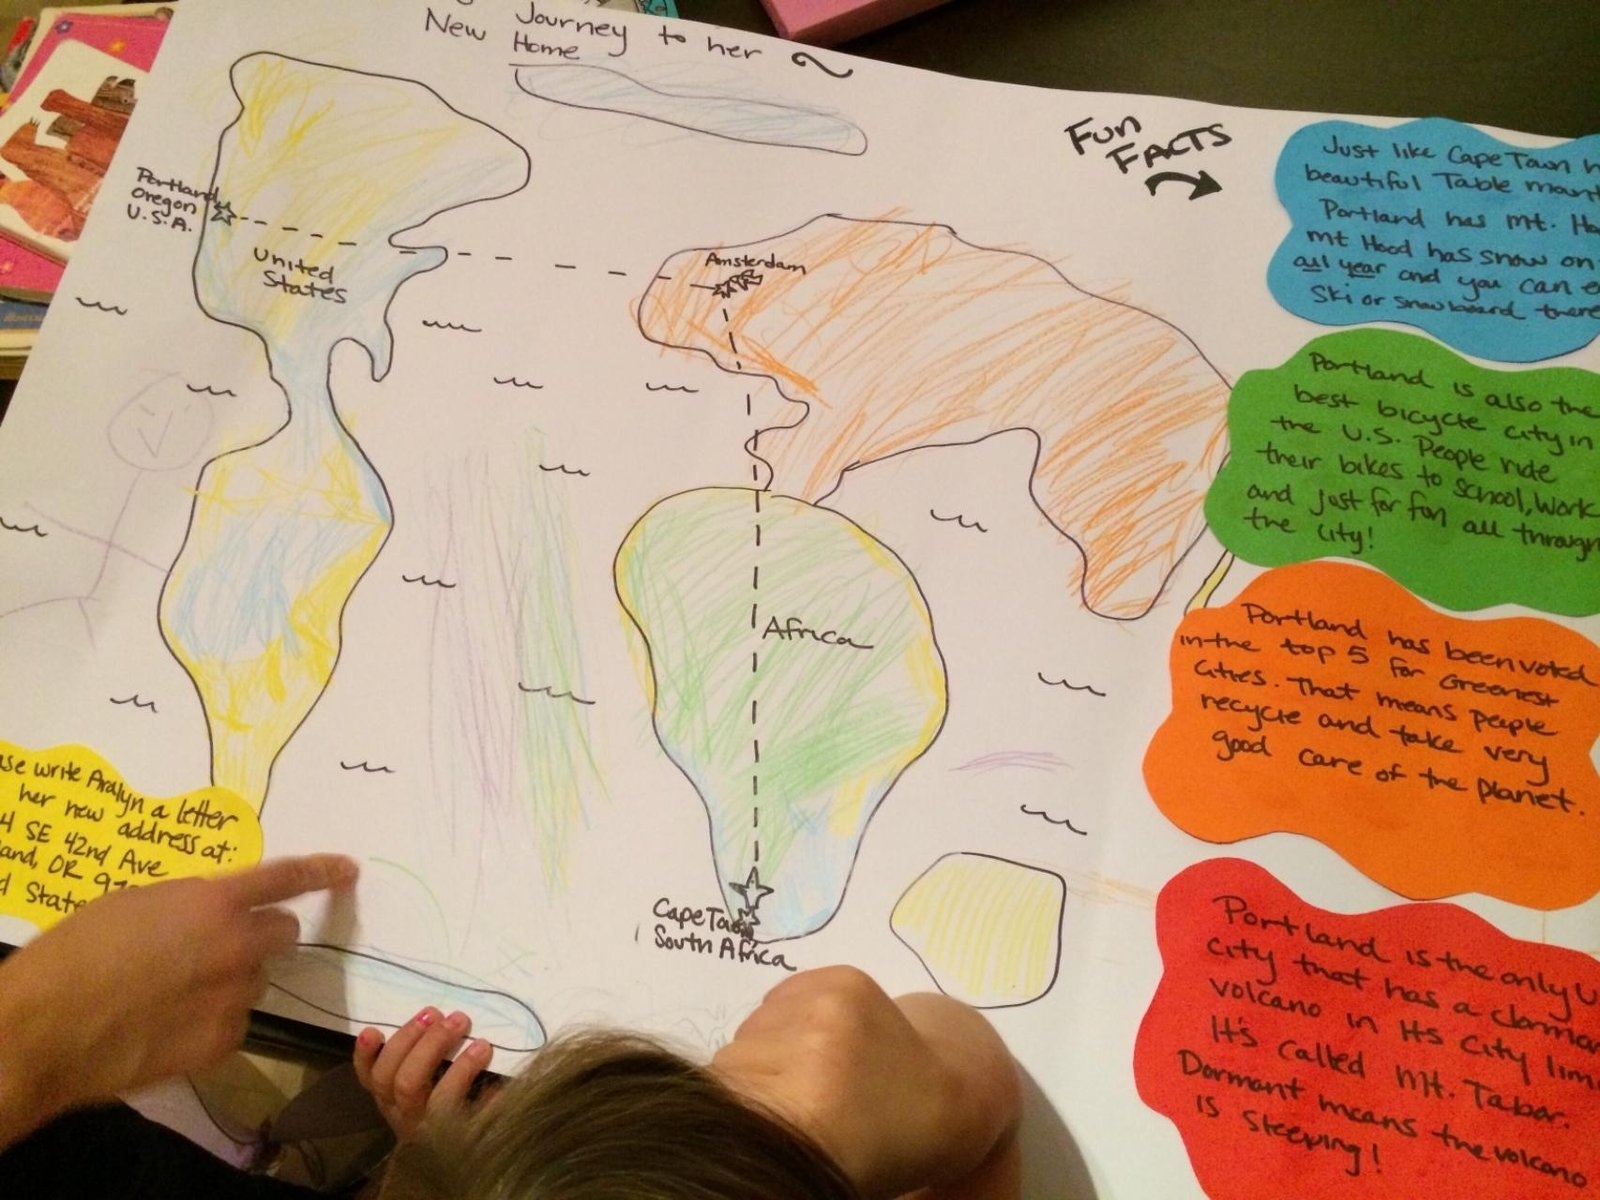 Journey to her
New Home
Fun
Facts
Portland
Oregon
U.S.A.
United
States
Amsterdam
Africa
Cape Town
South Africa
Just like Cape Town h
beautiful Table mount
Portland has mt. Ho
mt Hood has snow on
all year and you can e
Ski or snowboard there
Portland is also the
best bicycle city in
the U.S. People ride
their bikes to School, Work
and just for fun all through
the city!
Portland has been voted
in the top 5 for Greenest
Cities. That means people
recycle and take very
good care of the planet.
Portland is the only U
City that has a dorman
volcano in its City lim
It's called Mt. Tabor.
Dormant means the volcano
is sleeping!
ase write Aralyn a letter
her new address at:
4 SE 42nd Ave
land, OR 97
d State